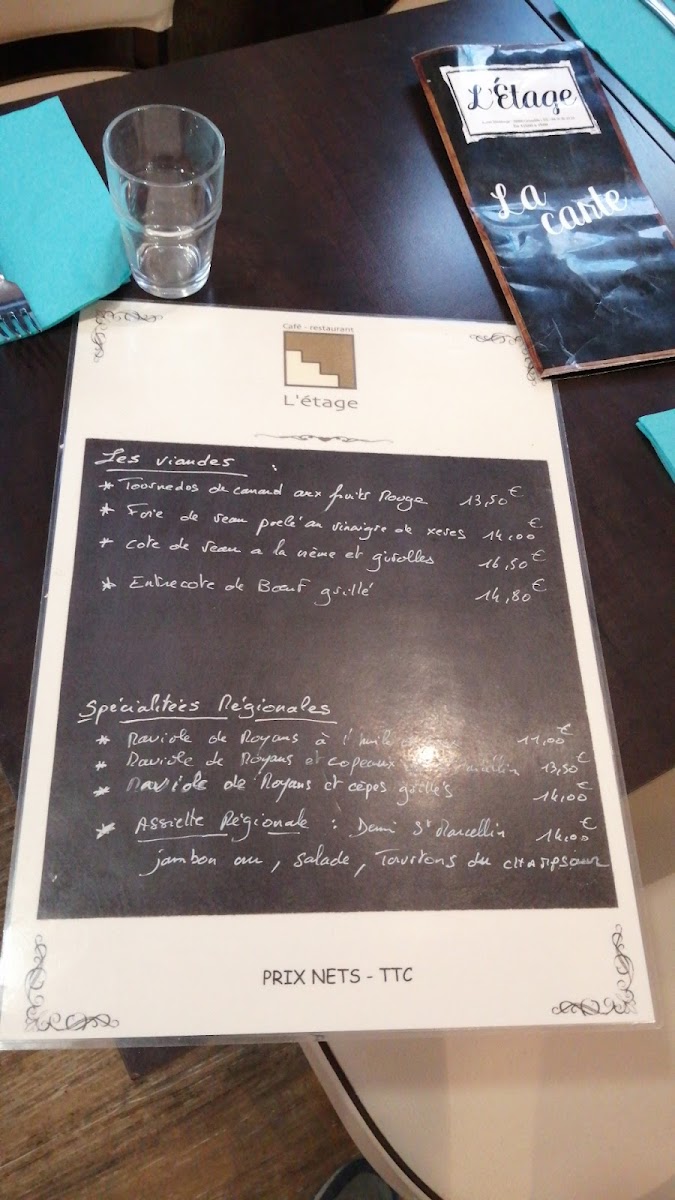 L'Étage
La
carte
Café - restaurant
L'étage
Les viandes :
* Tournedos de canard aux fruits Rouge 13,50€
* Foie de veau poelé au vinaigre de xeres 14,00€
* Cote de veau a la crème et girolles 16,50€
* Entrecote de Bœuf grillé 14,80€
Spécialitées Régionales
* Raviole de Royans à l'huile 11,00€
* Raviole de Royans et copeaux 13,50€
* Raviole de Royans et cèpes grillés 14,00€
* Assiette Régionale : Demi St Marcellin 14,00€
jambon cru, salade, Tourtons du CHAMPSAUR
PRIX NETS - TTC